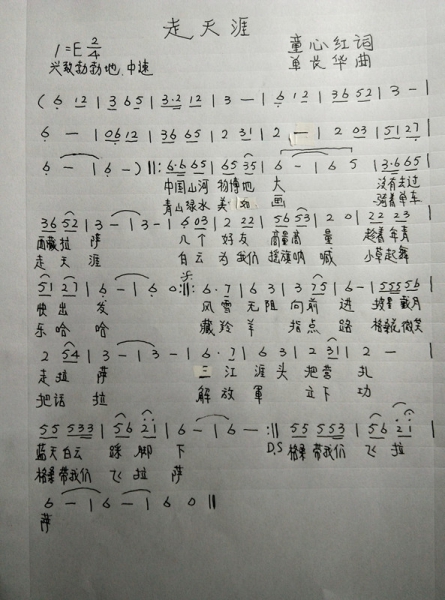 走天涯
1=E 2/4 童心红词
兴致勃勃地.中速 单长华曲
( 6 12 | 3 6 5 | 3·2 12 | 3 — | 6 12 | 36 52 | 3 — |
6 — | 06 12 | 36 65 | 2 31 | 2 — | 2 03 | 51 27 |
6 — | 6 — ) ||: 6·6 65 | 65 35 | 6 — | 6 5 | 3·6 65 |
中国山河 物博地 大 没有去过
青山绿水 美如 画 骑着单车
36 52 | 3 — | 3 — | 6 03 | 2 22 | 56 53 | 2 0 | 22 23 |
西藏拉 萨 几个好友 商量商 量 趁着年青
走天 涯 白云为我们 摇旗呐 喊 小草起舞
51 27 | 6 — | 6 0 :|| 6· 7 | 6 3 | 3 75 | 6 — | 555 56 |
快出 发 风雪无阻 向前 进 披星戴月
乐哈 哈 藏羚羊 指点 路 格桑花微笑
2 54 | 3 — | 3 — | 6· 7 | 6 3 | 2 31 | 2 — |
走拉 萨 三江源头 把营 扎
把话 拉 解放军 立下 功
55 533 | 56 21 | 6 — | 6 — :|| 55 553 | 56 21 |
蓝天白云 踩脚 下 D.S 格桑带我们 飞 拉
格桑带我们 飞拉 萨
6 — | 6 — | 6 0 ||
萨